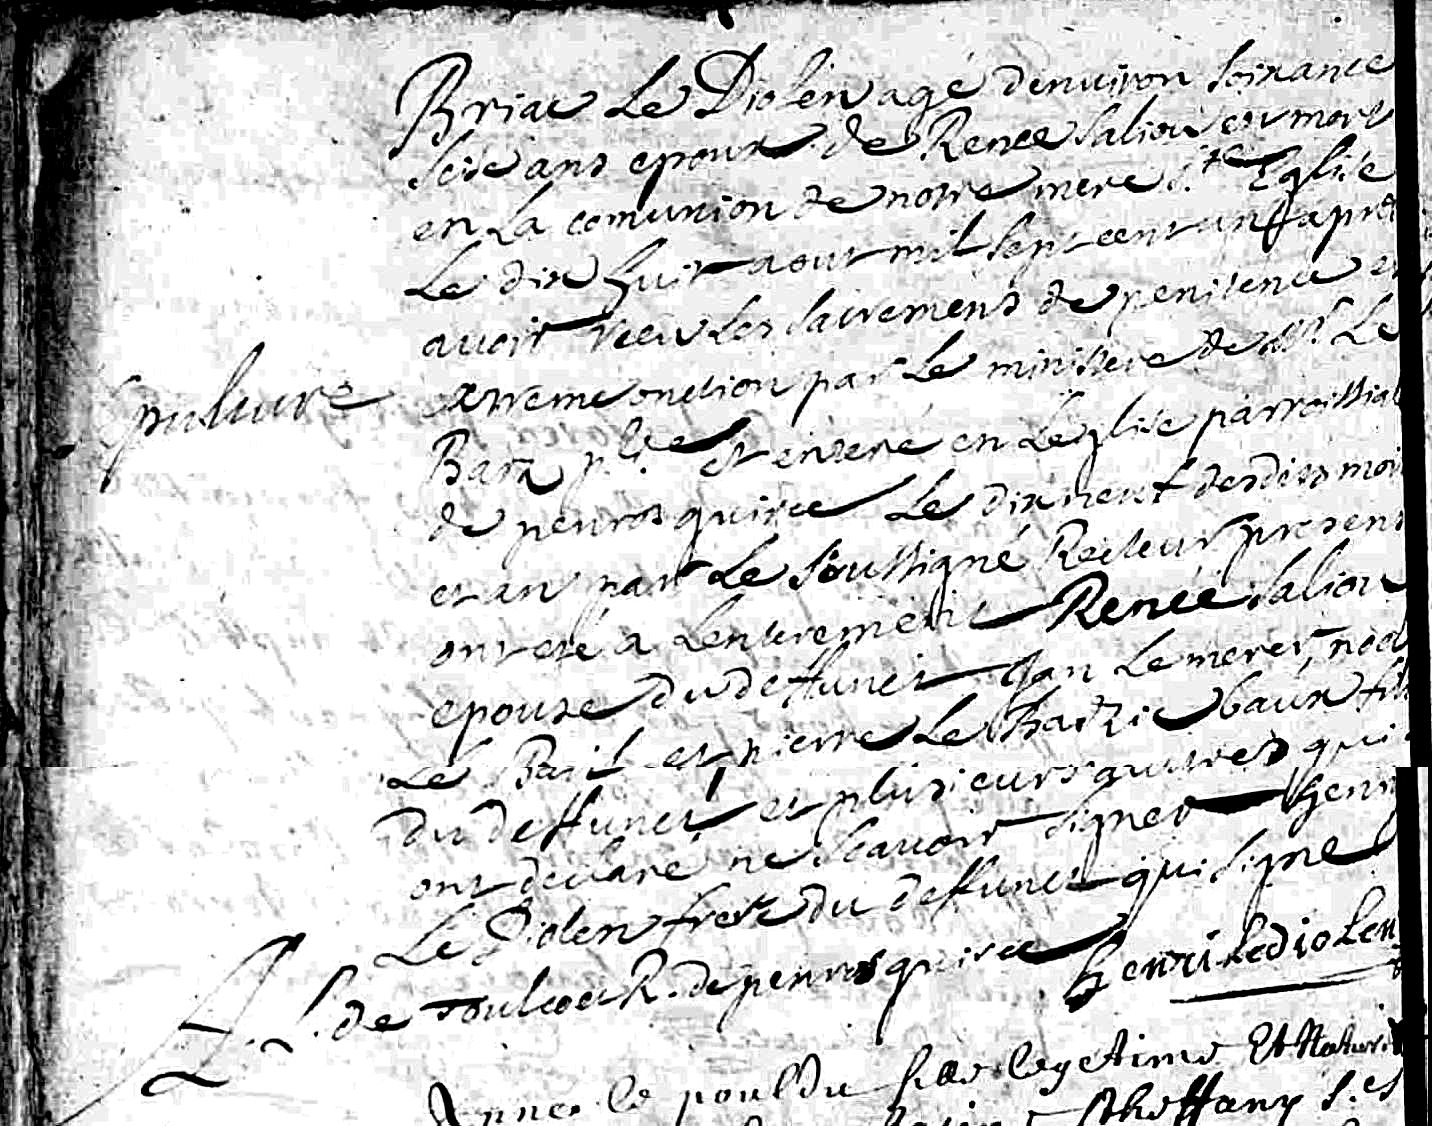 Briac Le Diolen agé denuiron soixante
seise ans epoux de Renee saliou est mort
en La comunion de notre mere s.te Eglise
Le dix huit aout mil sept cent un apres
auoir receu Les sacremens de penitence et
extreme onction par Le ministere de Mr Le
epulture
Bara p.tre et enteré en Leglise parroissial
de penrosguirec Le dixneuf desdits mois
et an par Le soussigné Recteur present
ont esté a Lenterement Renee saliou
epouse du deffunct Jan Le merer, noel
Le Bail et pierre Le baux fils
du deffunct et plusieurs autres qui
ont declaré ne scauoir signer henri
Le Diolen frere du deffunct qui signe
henri Lediolen
L. de Toulcoet R. de penrosguirec
Anne le pouldu legetime Et Naturel
s. et